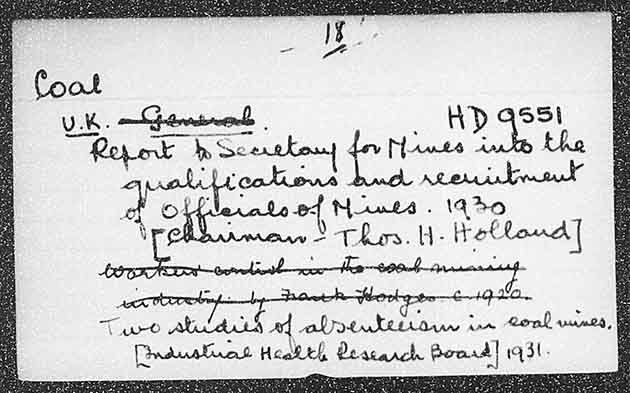 18
Coal
U.K. General. HD 9551
Report to Secretary for Mines into the
qualifications and recruitment
of Officials of Mines. 1930
[Chairman - Thos. H. Holland]
Workers control in the coal mining
industry. by Frank Hodges c. 1920.
Two studies of absenteeism in coal mines.
[Industrial Health Research Board] 1931.